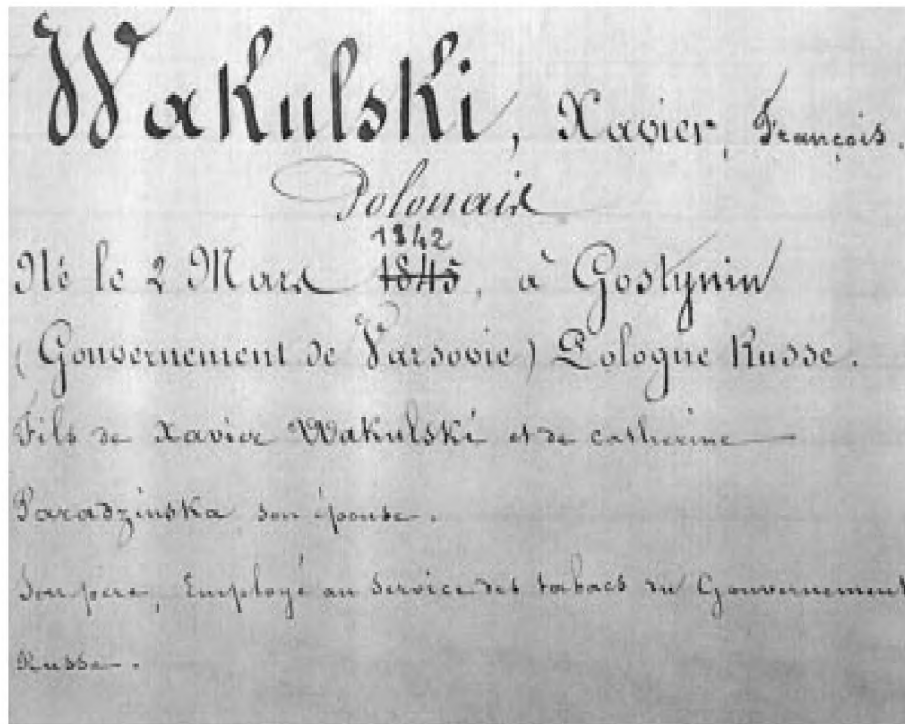 Wakulski, Xavier, François.
Polonais
1842
Né le 2 Mars 1845, à Gostynin
(Gouvernement de Varsovie) Pologne Russe.
Fils de Xavier Wakulski et de catherine —
Paradzinska son épouse.
Son père, Employé au service des tabacs du Gouvernement
Russe.